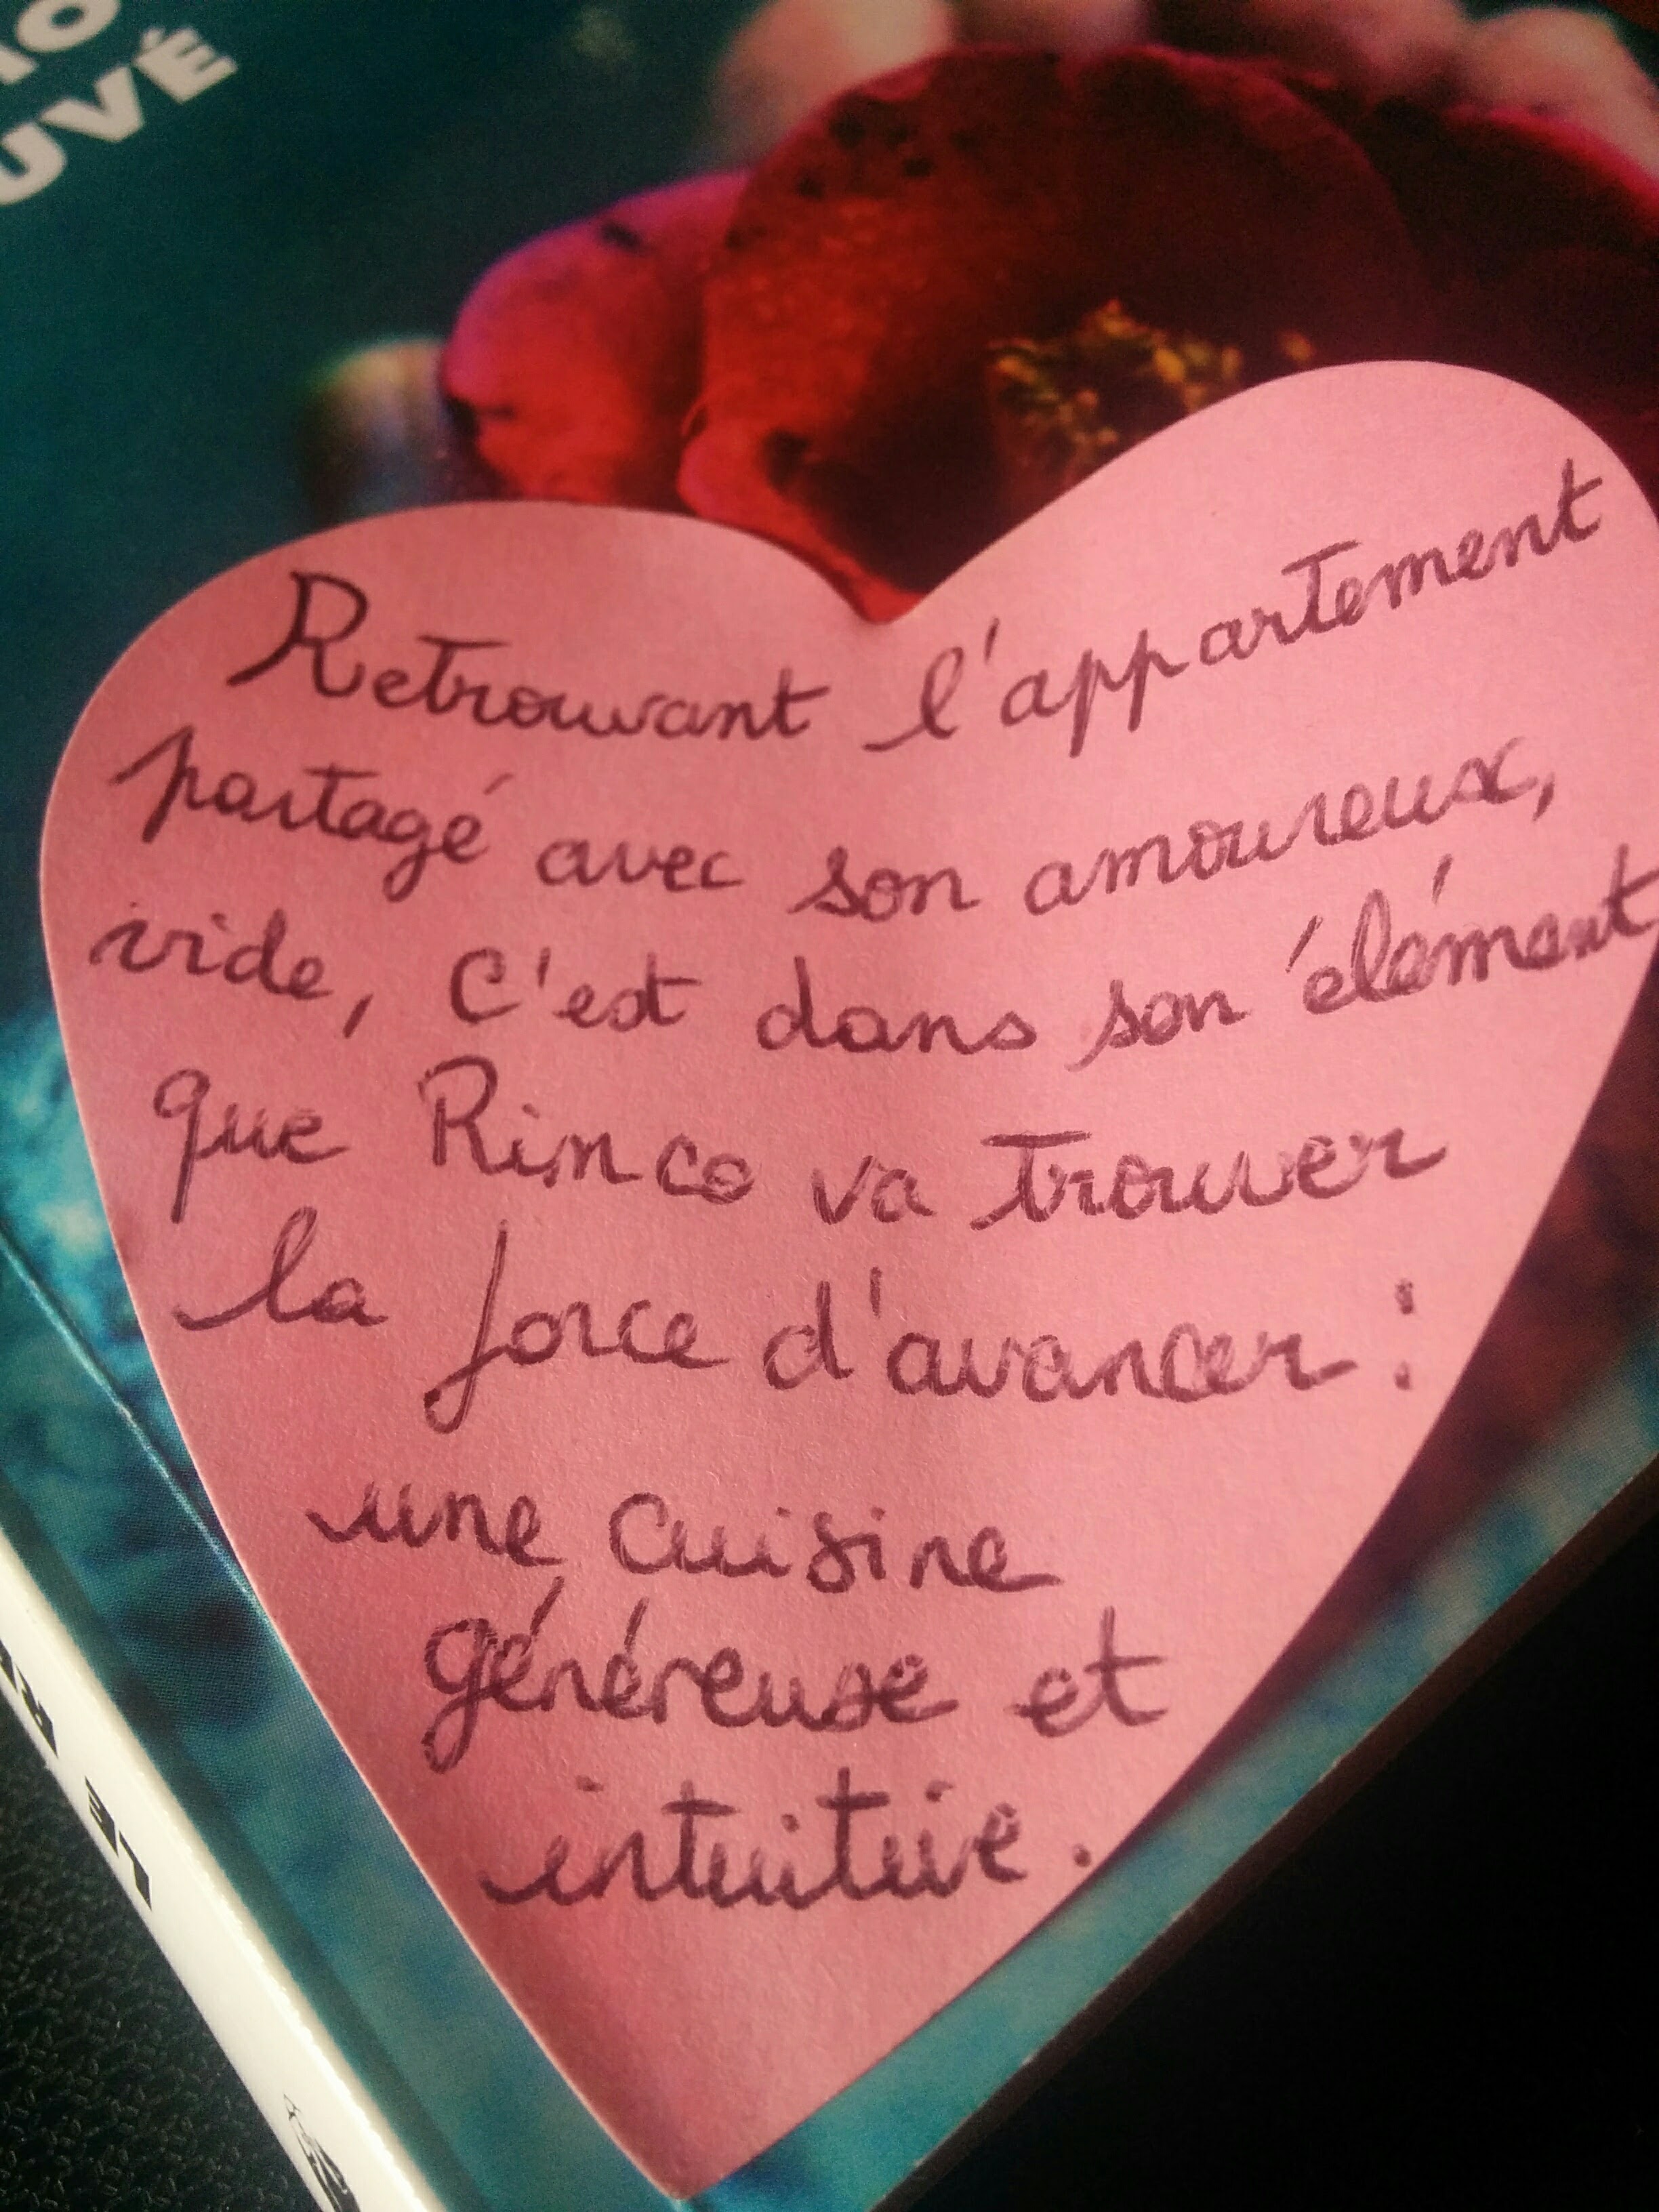 UVÉ
Retrouvant l'appartement
partagé avec son amoureux,
vide, c'est dans son élément
que Rinco va trouver
la force d'avancer :
une cuisine
généreuse et
intuitive.
LE